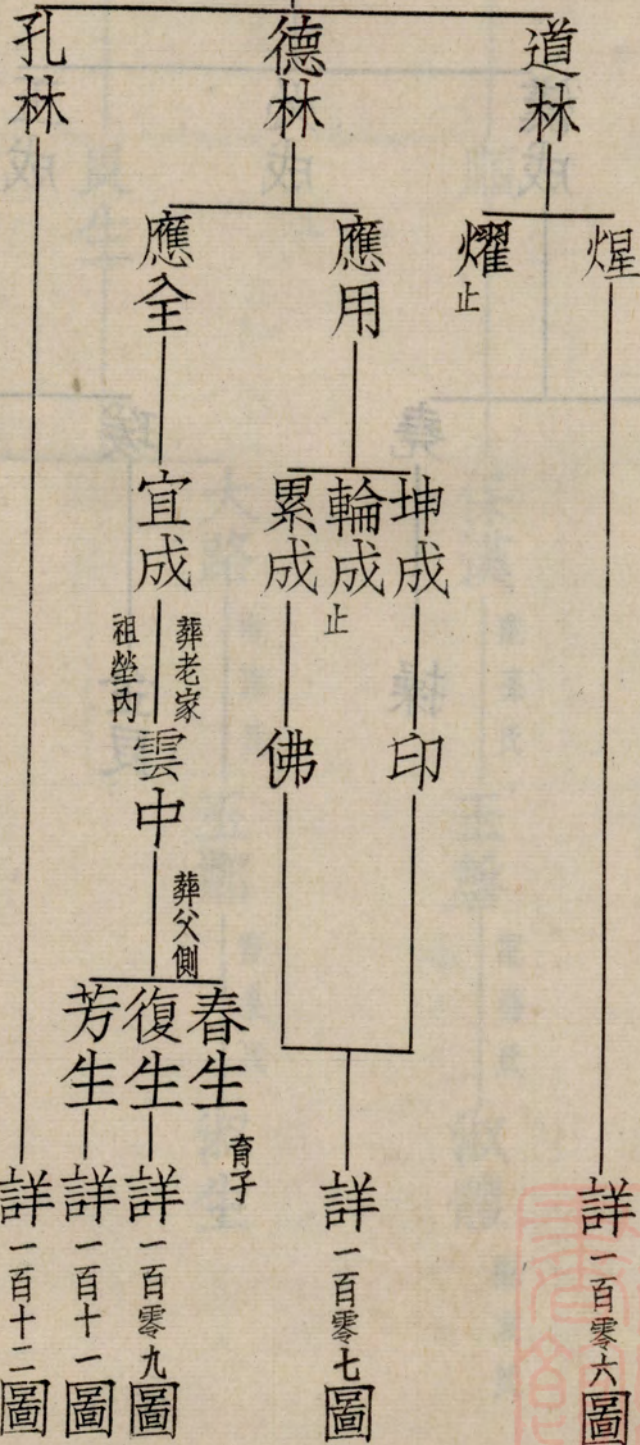 道林
煋
詳一百零六圖
燿
止
德林
應用
坤成
印
輪成
止
累成
佛
詳一百零七圖
應全
宜成
葬老家
祖塋內
雲中
葬父側
春生
育子
復生
詳一百零九圖
芳生
詳一百十一圖
孔林
詳一百十二圖